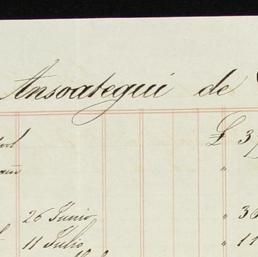 Ansoategui de
£ 3
26 Junio " 36
11 Julio " 11